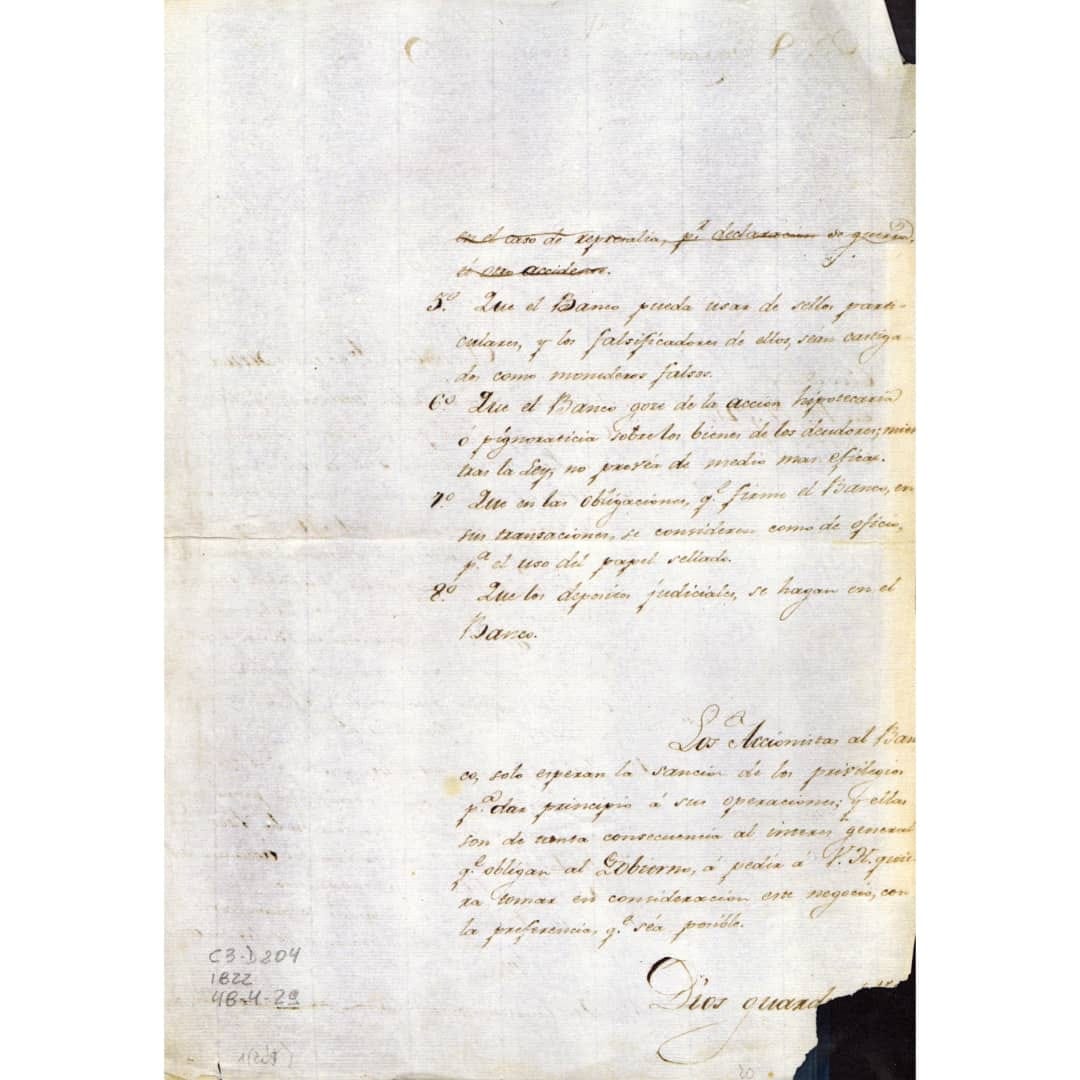 en el caso de represalia, p.ʳ declaracion de guerra,
ú otro accidente.
5.º Que el Banco pueda usar de sellos parti-
culares, y los falsificadores de ellos, sean castiga-
dos como monederos falsos.
6.º Que el Banco gose de la accion hipotecaria
ó pignoraticia sobre los bienes de los deudores; mien
tras la Ley, no provéa de medio mas eficaz.
7.º Que en las obligaciones, q.ᵉ firme el Banco, en
sus transaciones, se consideren como de oficio,
p.ᵃ el uso del papel sellado.
8.º Que los depositos judiciales, se hagan en el
Banco.
Los Accionistas al Ban
co, solo esperan la sancion de los privilegios
p.ᵃ dar principio á sus operaciones; y ellas
son de tanta consecuencia al interes general
q.ᵉ obligan al Gobierno, á pedir á V.H. quie-
ra tomar en consideracion este negocio, con
la preferencia, q.ᵉ séa posible.
Dios guard
C3-D204
1822
48-4-29
20